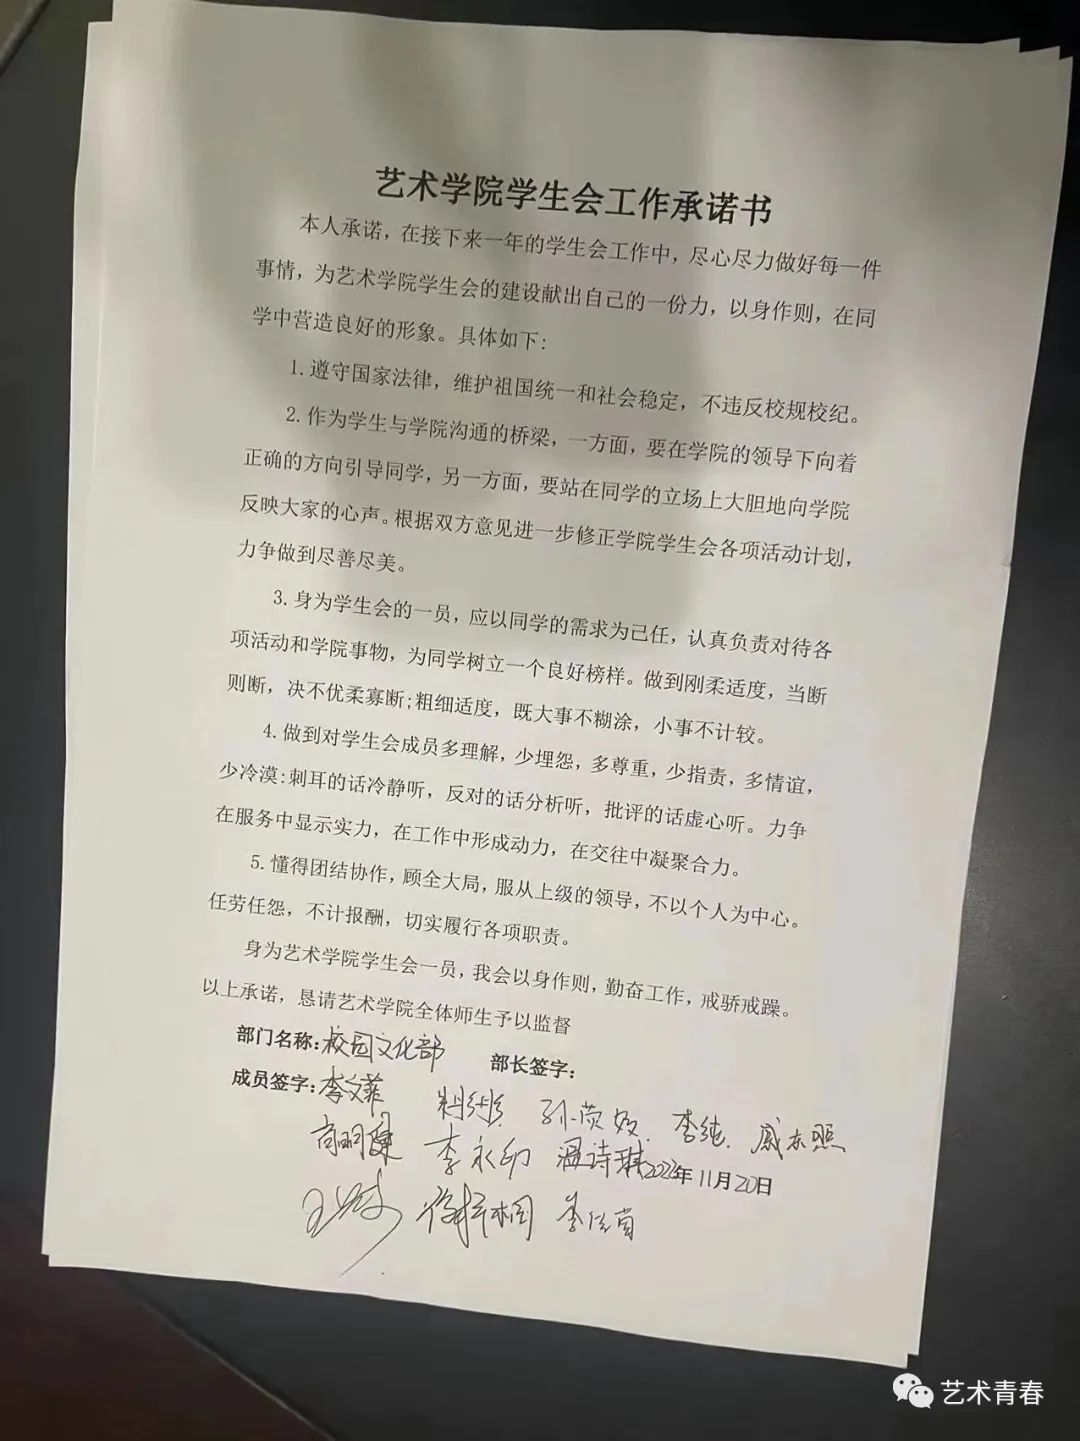 艺术学院学生会工作承诺书
本人承诺，在接下来一年的学生会工作中，尽心尽力做好每一件
事情，为艺术学院学生会的建设献出自己的一份力，以身作则，在同
学中营造良好的形象。具体如下：
1.遵守国家法律，维护祖国统一和社会稳定，不违反校规校纪。
2.作为学生与学院沟通的桥梁，一方面，要在学院的领导下向着
正确的方向引导同学，另一方面，要站在同学的立场上大胆地向学院
反映大家的心声。根据双方意见进一步修正学院学生会各项活动计划，
力争做到尽善尽美。
3.身为学生会的一员，应以同学的需求为己任，认真负责对待各
项活动和学院事物，为同学树立一个良好榜样。做到刚柔适度，当断
则断，决不优柔寡断;粗细适度，既大事不糊涂，小事不计较。
4.做到对学生会成员多理解，少埋怨，多尊重，少指责，多情谊，
少冷漠:刺耳的话冷静听，反对的话分析听，批评的话虚心听。力争
在服务中显示实力，在工作中形成动力，在交往中凝聚合力。
5.懂得团结协作，顾全大局，服从上级的领导，不以个人为中心。
任劳任怨，不计报酬，切实履行各项职责。
身为艺术学院学生会一员，我会以身作则，勤奋工作，戒骄戒躁。
以上承诺，恳请艺术学院全体师生予以监督
部门名称：校园文化部 部长签字：
成员签字：李文菲 李纯
李永印 温诗琪 年11月20日
艺术青春